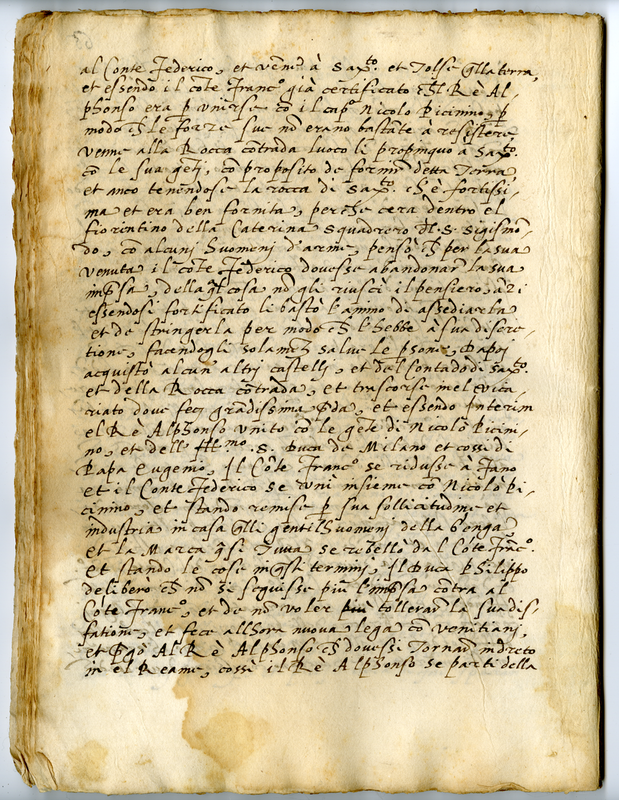 al Conte Federico, et venne à Saxto. et Tolse qlla terra,
et essendo il cōte Franco già certificato ch'l Rè Al-
phonso era p unirse cō il capo Nicolo Picinino, p
modo ch le forze sue nō erano bastāte à resistere,
venne alla Rocca cōtrada luoco li propinquo à Saxto
cō le sua gēti, cō proposito de fornir detta Terra,
et anco tenendose la rocca di Saxto. ch'è fortissi-
ma et era ben fornita, perche c'era dentro el
fiorentino della Caterina squadrero dl S. Sigismō-
do, cō alcuni huomeni d'arme, pensò ch per la sua
venuta il cōte Federico dovesse abandonar la sua
impsa, della ql cosa nō gli riuscì il pensiero, āzi
essendosi fortificato li bastò l'animo di assediarla
et de stringerla per modo ch l'hebbe à sua discre-
tione, facendogli solamte salve le psone, Dapoi
acquistò alcun' altri castelli, et del contado di Saxto.
et della Rocca cōtrada, et trascorse nel vica-
riato dove fece grādissima pda, et essendo interim
el Rè Alphonso unito cō le gēte di Nicolò Picini-
no, et dell' Illmo. S. Duca de Milano et cossi di
Papa Eugenio, Il Cōte Franco se ridusse à Fano
et il Conte Federico se unì insieme cō Nicolò Pi-
cinino, et stando remise p sua sollicitudine et
industria in casa qlli gentilhuomeni della
et la Marca qsi Tutta se rebellò dal Cōte Franco.
et stando le cose in qsti termini, Il Duca Philippo
deliberò ch nō si seguisse più l'impsa cōtra al
Cōte Franco, et de nō voler più tollerar la sua dis-
fatione, et fece allhora nuova lega cō venitiani,
et pgò Al Rè Alphonso ch dovessi Tornar indreto
in el Reame, cossi il Rè Alphonso se partì della